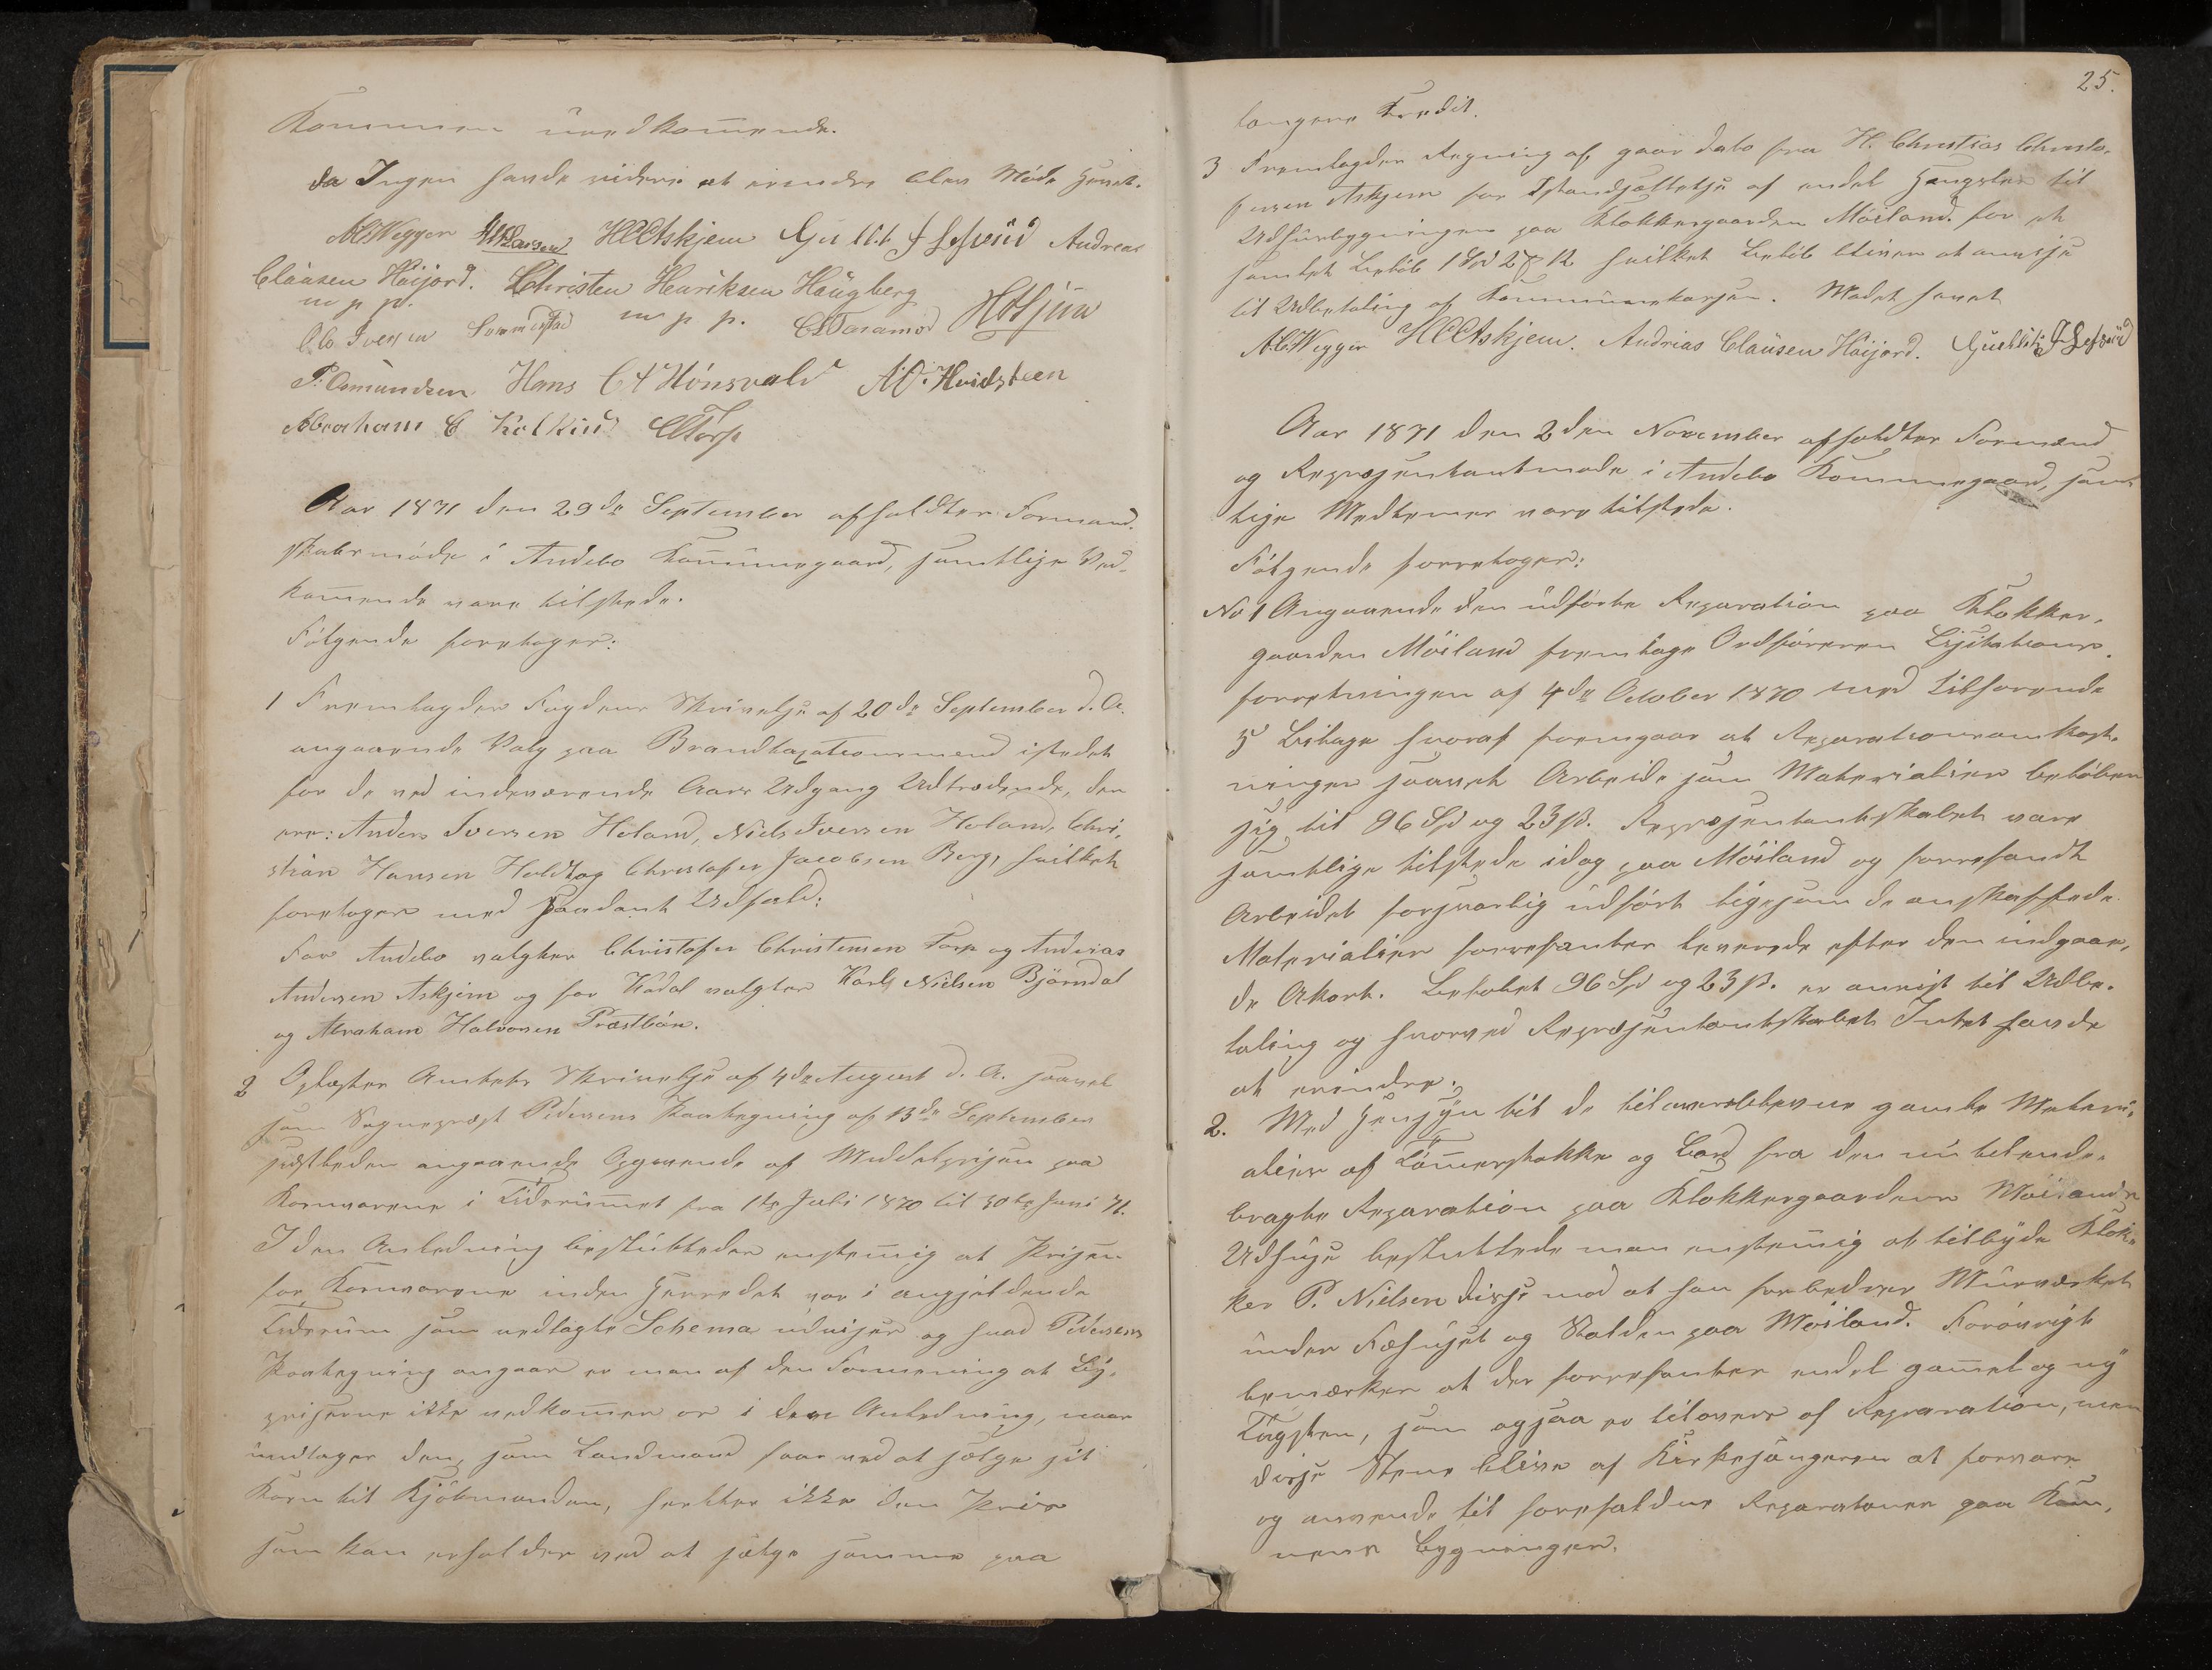 Kommunen uvedkommende.
da Ingen havde videre at erindre blev Möde hevet.
A. C. Wegger HCAskjem Andreas
Clausen Höijord. Christen Henriksen Haugberg
m p p. m p p.
Iversen
P. Amundsen Hans C Hönsvald A. O. Hvidsteen
Abraham C CTorp
Aar 1871 den 29de September afholdtes Formand-
skabsmöde i Andebo Kommunegaard, samtlige Ved-
kommende vare tilstede.
Fölgende foretoges:
1 Fremlagdes Fogdens Skrivelse af 20de September d. A.
angaaende Valg paa Brandtaxationsmænd istedet
for de ved indeværende Aars Udgang Udtrædende, den
ere: Anders Iversen Holand, Niels Iversen Holand, Chri-
stian Hansen Holdt og Christofer Jacobsen Berg, hvilket
foretoges med saadant Udfald:
For Andebo valgtes Christofer Christensen Torp og Andreas
Andersen Askjem og for Kodal valgtes Karl Nielsen Björndal
og Abraham Halvorsen Præstbön.
2 Oplæstes Amtets Skrivelse af 4de August d. A. saavel
som Sogneprest Pedersens Paategning af 13de September
sidstleden angaaende Opgivende af Middelprisen paa
Kornvarene i Tidsrummet fra 1ste Juli 1870 til 30te Juni 71.
I den Anledning besluttedes enstemmig at Prisen
for Kornvarene inden Herredet var i angjeldende
Tidsrum som vedlagte Schema udviser og hvad Pedersens
Paategning angaar er man af den Formening at By-
priserne ikke vedkommer os i den Anledning, naar
undtages den, som Landmand faar ved at sælge sit
Korn til Kjöbmanden, heller ikke den Pris
som kan erholdes ved at sælge samme paa
25.
længere Kredit.
3 Fremlagdes Regning af gaars dato fra H. Christias Christo-
fersen Askjem for Istandsættelse af endel Hængsler til
Udhusbygningen paa Klokkergaarden Möiland for et
samlet Belöb 1 Spd 2 12 hvilket Belöb blives at anvise
til Udbetaling af Kommunekassen. Mödet hevet
A. C. Wegger HCAskjem. Andreas Clausen Höijord.
Aar 1871 den 2den November afholdtes Formand
og Repræsentantmöde i Andebo Kommunegaard, sam-
lige Medlemer vare tilstede.
Fölgende forretoges:
No 1 Angaaende den udförte Reparation paa Klokker-
gaarden Möiland fremlage Ordföreren Lisitations-
forretningen af 4de October 1870 med tilhörende
5 Bilage hvoraf fremgaar at Reparationsomkost-
ninger saavel Arbeide som Materialier belöber
sig til 96 Spd og 23 ß. Repræsentantskabet vare
samtlige tilstede idag paa Möiland og forrefandt
Arbeidet forsvarlig udfört ligesom de anskaffede
Materialier forrefantes leverede efter den indgaae-
de Akort. Belöbet 96 Spd og 23 ß. er anvist til Udbe-
taling og hvorved Repræsentantskabet Intet havde
at erindre.
2. Med Hensyn til de tiloversblevne gamle Materi-
alier af Tömmerstokke og Bord fra den nu tilende-
bragte Reparation paa Klokkergaardens Möilands
Udhuse besluttede man enstemmig at tilbyde Klok-
ker P. Nielsen disse mod at han forbedrer Murværket
under Fæhuset og Stalden paa Möiland. Forövrigt
bemærkes at der forrefantes endel gammel og ny
Tagsten, som ogsaa er tilovers af Reparation, men
disse Stene blive af Kirkesangeren at forvare
og anvende til forefaldne Reparationer paa Kom-
munens Bygninger.